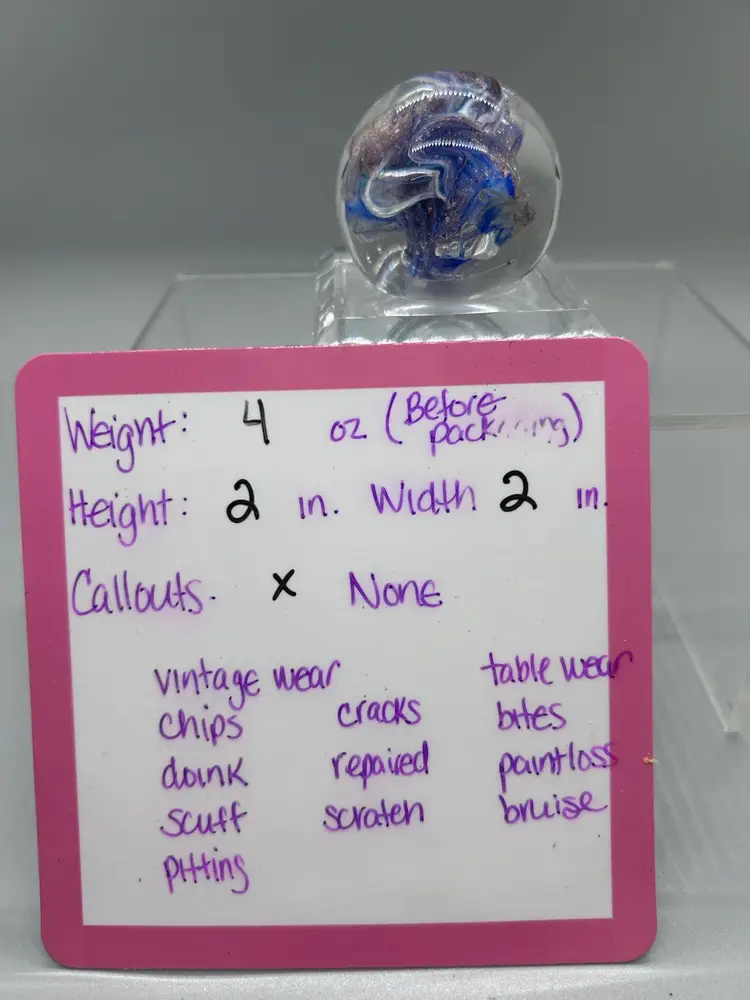 Weight: 4 oz (Before
Height: 2 in. Width 2 in.
Callouts. x None
vintage wear table wear
chips cracks bites
doink repaired paintloss
scuff scratch bruise
pitting